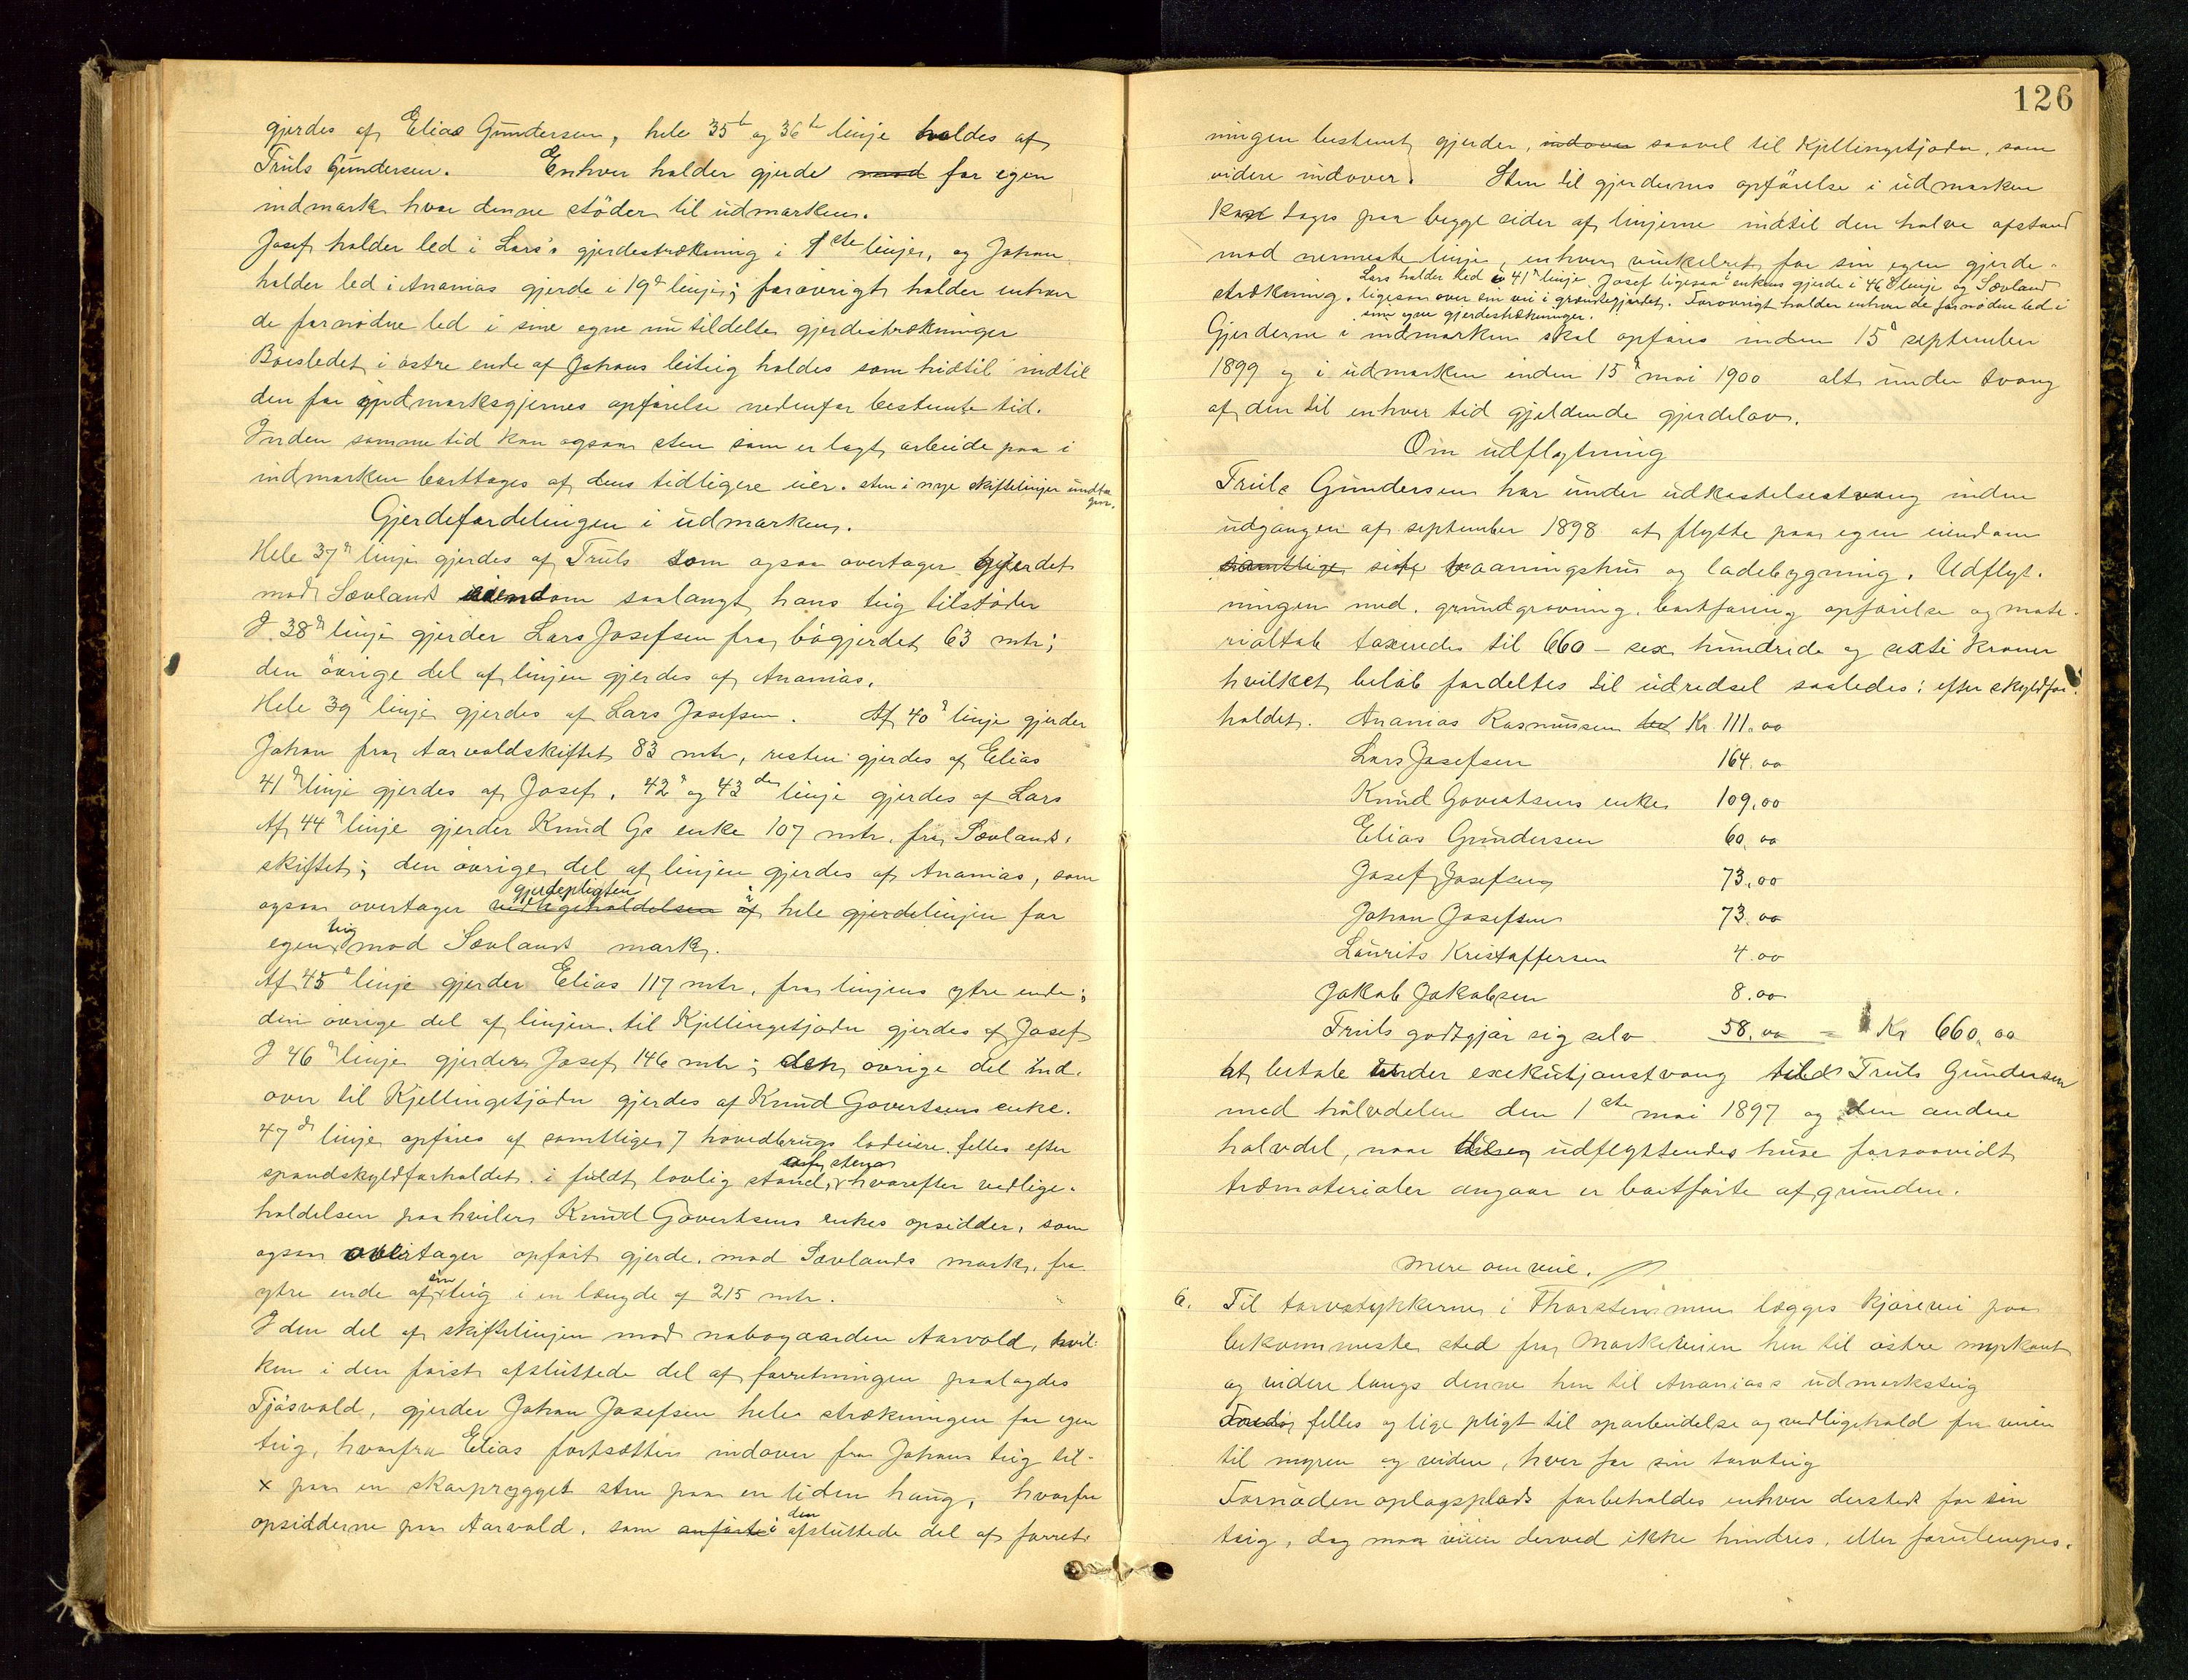 gjerdes af Elias Gundersen, hele 35te og 36te linje holdes af
Truls Gundersen. Enhver holder gjerde mod for egen
indmark hvor denne støder til udmarken.
Josef holder led i Lars's gjerdestrækning i 1ste linje, og Johan
holder led i Ananias gjerde i 19d linje; forøvrigt holder enhver
de fornødne led i sine egne nu tildelte gjerdestrækninger
Baesledet i østre ende af Johans leiteig holdes som hidtil indtil
den for indmarksgjernes opførelse nedenfor bestemte tid.
Inden samme tid kan ogsaa sten som er lagt arbeide paa i
indmarken borttages af dens tidligere eier. sten i nye skiftelinjer undta
gen.
Gjerdefordelingen i udmarken.
Hele 37d linje gjerdes af Truls som ogsaa overtager gjerdet
mod Sævlands eiendom saalangt hans teig tilstøder
I 38d linje gjerder Lars Josefsen fra bøgjerdet 63 mtr;
den øvrige del af linjen gjerdes af Ananias.
Hele 39d linje gjerdes af Lars Josefsen. Af 40d linje gjerder
Johan fra Aarvoldskiftet 83 mtr, resten gjerdes af Elias
41d linje gjerdes af Josef. 42d og 43de linje gjerdes af Lars
Af 44d linje gjerder Knud Gs enke 107 mtr. fra Sævlands-
skiftet; den øvrige del af linjen gjerdes af Ananias, som
gjerdepligten i
ogsaa overtager vedligeholdelsen af hele gjerdelinjen for
egen teig mod Sævlands mark.
Af 45d linje gjerder Elias 117 mtr, fra linjens ytre ende;
den øvrige del af linjen til Kjellingstjødn gjerdes af Josef
I 46d linje gjerder Josef 146 mtr; den øvrige del ind-
over til Kjellingstjødn gjerdes af Knud Govertsens enke.
47d linje opføres af samtlige 7 hovedbrugs lodeiere felles efter
af sten
spandskyldforholdet i fuldt lovlig stand, hvorefter vedlige-
holdelsen paahviler Knud Govertsens enkes opsidder, som
ogsaa overtager opført gjerde mod Sævlands mark, fra
ytre ende af sin teig i en længde af 215 mtr.
I den del af skiftelinjen mod nabogaarden Aarvold, hvil-
ken i den først afsluttede del af forretningen paalagdes
Tjøsvold, gjerder Johan Josefsen hele strækningen for egen
teig, hvorfra Elias fortsætter indover fra Johans teig til
x paa en skarprygget sten paa en liden haug, hvorfra
opsidderne paa Aarvold, som anført i den afsluttede del af forret-
126
ningen bestemt gjerder, indover saavel til Kjellingstjødn, som
videre indover. Sten til gjerdernes opførelse i udmarken
kan tages paa begge sider af linjerne indtil den halve afstand
mod nermeste linje, enhver vinkelret for sin egen gjerde-
Lars holder led i 41d linje. Josef ligesaa i enkens gjerde i 46d linje og Sævland
strækning. ligesaa over sin vei i grændsegjærdet. Forøvrigt holder enhver de fornødne led i
sine egne gjerdestrækninger.
Gjerderne i indmarken skal opføres inden 15d september
1899 og i udmarken inden 15d mai 1900 alt under tvang
af den til enhver tid gjeldende gjerdelov.
Om udflytning
Truls Gundersen har under udkastelsestvang inden
udgangen af september 1898 at flytte paa egen eiendom
samtlige sine vaaningshus og ladebygning. Udflyt-
ningen med grundgravning, bortføring opførelse og mate-
rialtab taxeredes til 660 - sex hundride og sexti kroner
hvilket beløb fordeltes til udredsel saaledes: efter skyldfor-
holdet. Ananias Rasmussen Kr. 111.00
Lars Josefsen 164.00
Knud Govertsens enke 109.00
Elias Gundersen 60.00
Josef Josefsen 73.00
Johan Josefsen 73.00
Laurits Kristoffersen 4.00
Jakob Jakobsen 8.00
Truls godtgjør sig selv 58.00 = Kr 660.00
at betale under exekutjonstvang til Truls Gundersen
med halvdelen den 1ste mai 1897 og den anden
halvdel, naar udflyttendes huse forsaavidt
træmaterialer angaar er bortførte af grunden.
Mere om veie.
6. Til torvstykkerne i Thorsteinsmyren lægges kjørevei paa
bekvemmeste sted fra Markeveien hen til østre myrkant
og videre langs denne hen til Ananias's udmarksteig
felles og lige pligt til oparbeidelse og vedligehold fra veien
til myren og videre, hver for sin torvteig
Fornøden oplagsplads forbeholdes enhver dersteds for sin
teig, dog maa veien derved ikke hindres, eller forulempes.